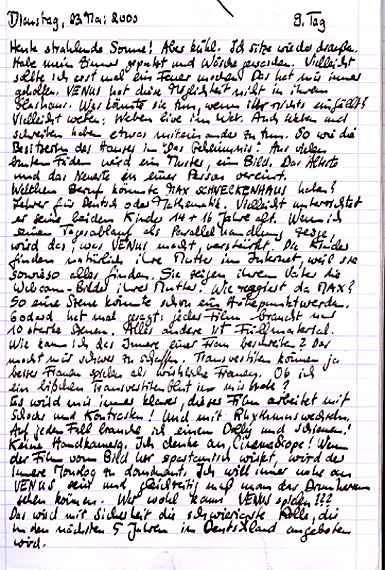 Dienstag, 23 Mai 2000 9. Tag
Heute strahlende Sonne! Aber kühl. Ich sitze wieder draußen.
Habe mein Zimmer geputzt und Wäsche gewaschen. Vielleicht
sollte ich erst mal ein Feuer machen. Das hat mir immer
geholfen. VENUS hat diese Möglichkeit nicht in ihrem
Glashaus. Was könnte sie tun, wenn ihr nichts einfällt?
Vielleicht weben. Weben live im Web. Auch Weben und
schreiben haben etwas miteinander zu tun. So wie die
Besitzerin des Hauses in "Das Geheimnis". Aus vielen
bunten Fäden wird ein Muster, ein Bild. Das Älteste
und das Neueste in einer Person vereint.
Welchen Beruf könnte MAX SCHNECKENHAUS haben?
Lehrer für Deutsch oder Mathematik. Vielleicht unterrichtet
er seine beiden Kinder 14 + 16 Jahre alt. Wenn ich
einen Tagesablauf als Parallelhandlung zeige,
wird das, was VENUS macht, verstärkt. Die Kinder
finden natürlich ihre Mutter im Internet, weil sie
sowieso alles finden. Sie zeigen ihrem Vater die
Webcam-Bilder ihrer Mutter. Wie reagiert da MAX?
So eine Szene könnte schon ein Höhepunkt werden.
Godard hat mal gesagt: jeder Film braucht nur
10 starke Szenen. Alles andere ist Füllmaterial.
Wie kann ich das Innere einer Frau beschreiben? Das
macht mir schwer zu schaffen. Transvestiten können ja
besser Frauen spielen als wirkliche Frauen. Ob ich
ein bißchen Transvestitenblut in mir habe?
Es wird mir immer klarer, dieser Film arbeitet mit
Schocks und Kontrasten! Und mit Rhythmuswechseln.
Auf jeden Fall brauche ich einen Dolly und Schienen!
Keine Handkamera. Ich denke an Cinemascope! Wenn
der Film vom Bild her spartanisch wirkt, wird der
innere Monolog zu dominant. Ich will immer nahe an
VENUS sein und gleichzeitig muß man das Drumherum
sehen können. Wer wohl kann VENUS spielen???
Das wird mit Sicherheit die schwierigste Rolle, die
in den nächsten 5 Jahren in Deutschland angeboten
wird.